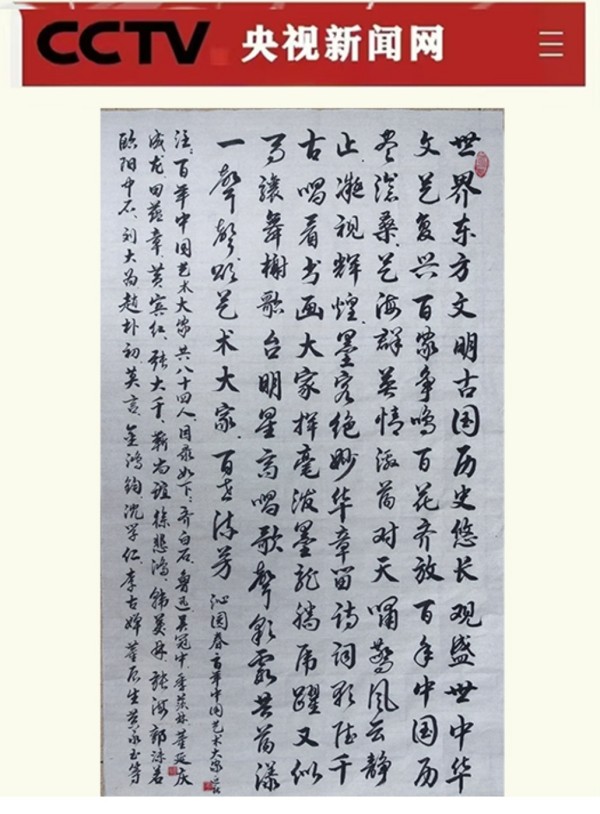 CCTV 央视新闻网
世界东方文明古国历史悠长观盛世中华
文艺复兴百家争鸣百花齐放百年中国历
尽沧桑艺海群英情激荡对天啸惊风云静
止凝视辉煌墨客绝妙华章留诗词歌千
古唱看书画大家挥毫泼墨龙腾虎跃又似
舞榭歌台明星高唱歌声彩霞共荡漾
一声声颂艺术大家百世流芳 沁园春百年中国艺术大家
注：百年中国艺术大家共八十四人目录如下：齐白石、鲁迅、吴冠中、季羡林、董延庆
成龙、田蕴章、黄宾虹、张大千、靳尚谊、徐悲鸿、韩美林、张海、郭沫若
欧阳中石、刘大为、赵朴初、莫言、金鸿钧、沈学仁、李古婵、董辰生、黄永玉等